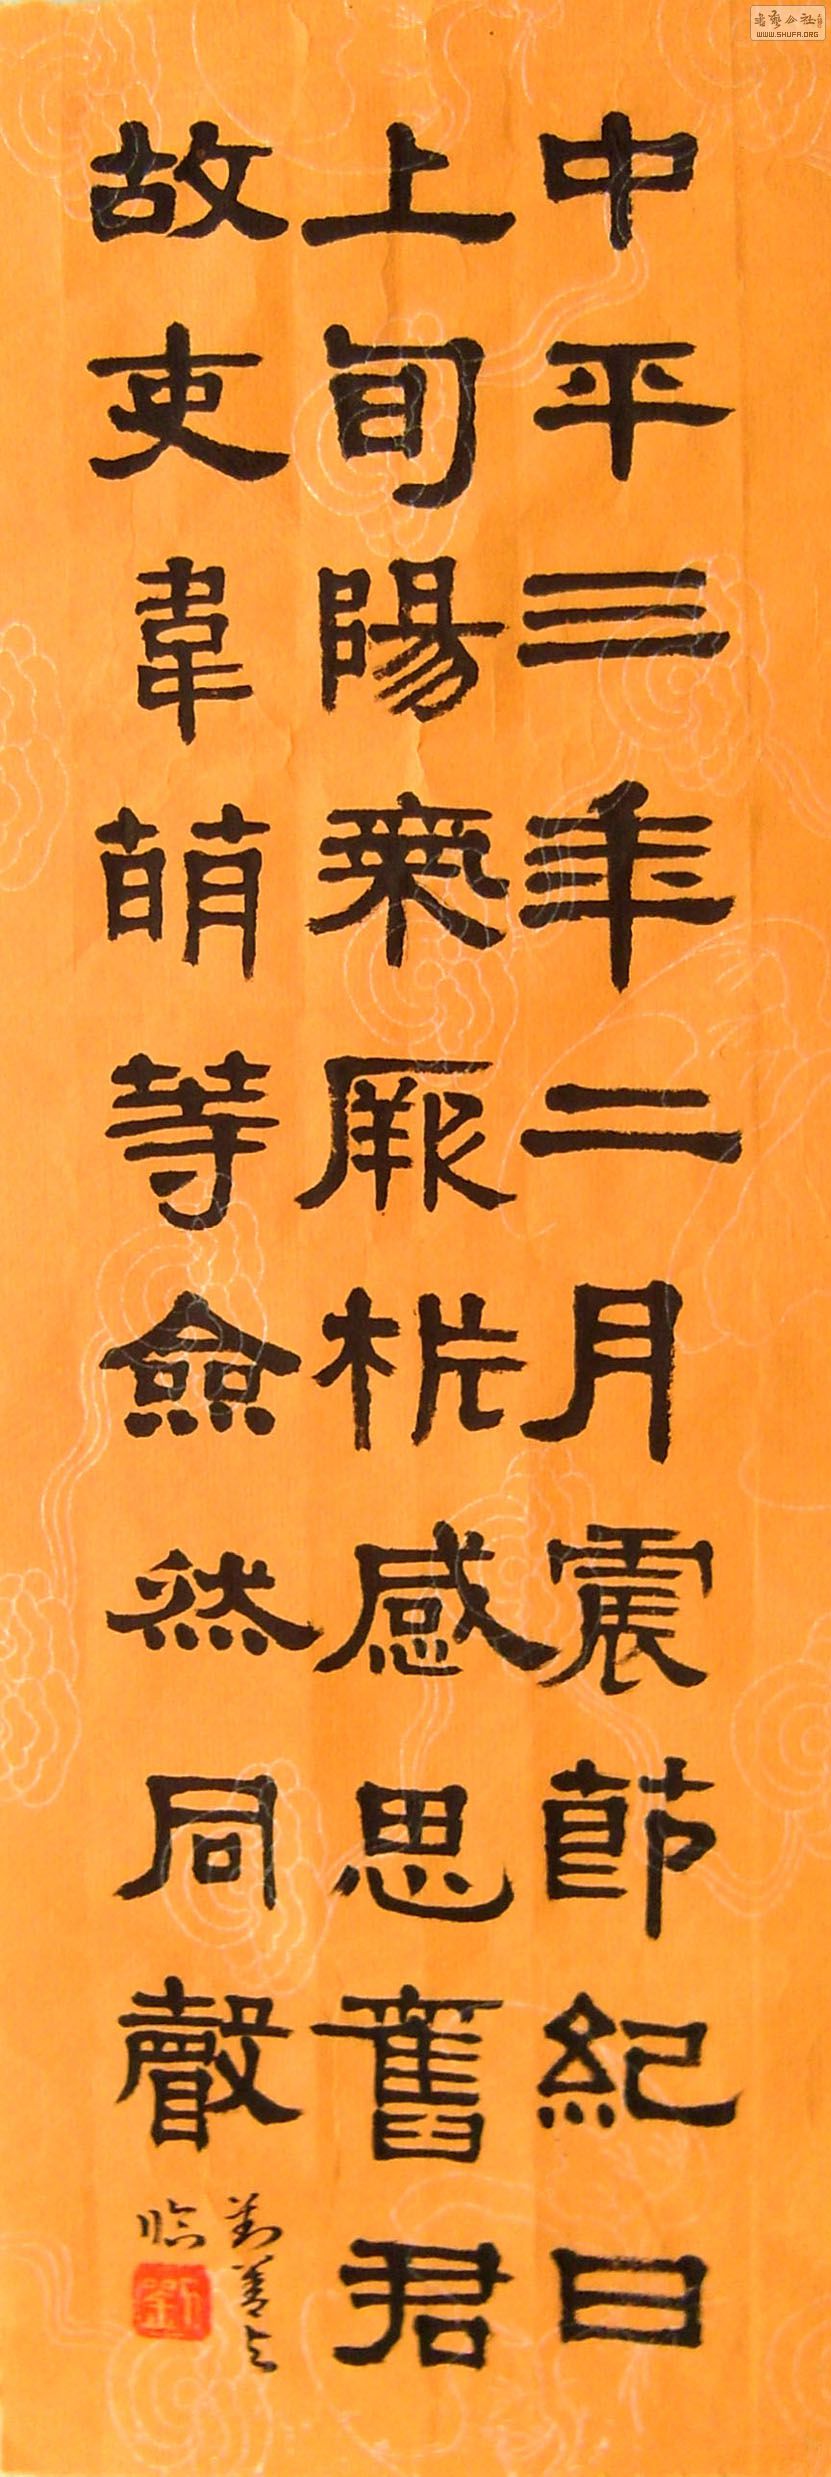 中平三年二月震節紀日
上旬陽氣厥枎感思舊君
故吏韋萌等僉然同聲
劉善
臨
劉
WWW.SHUFA.ORG